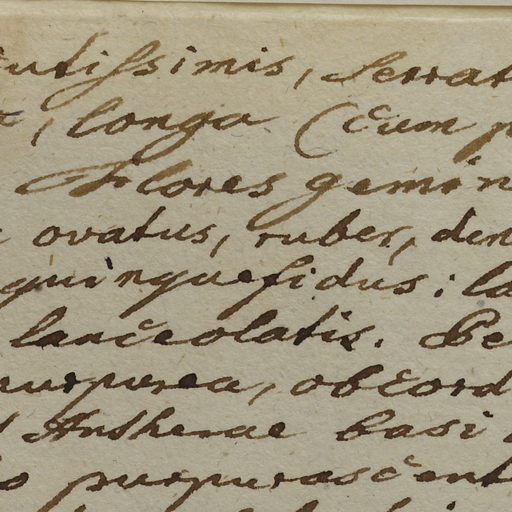 cutissimis, serrat
, longa (cum p
Flores gemin
ovatus, ruber, den
quinquefidus: la
lanceolatis. Pe
purpurea, obcord
Antherae basi
purpurascent